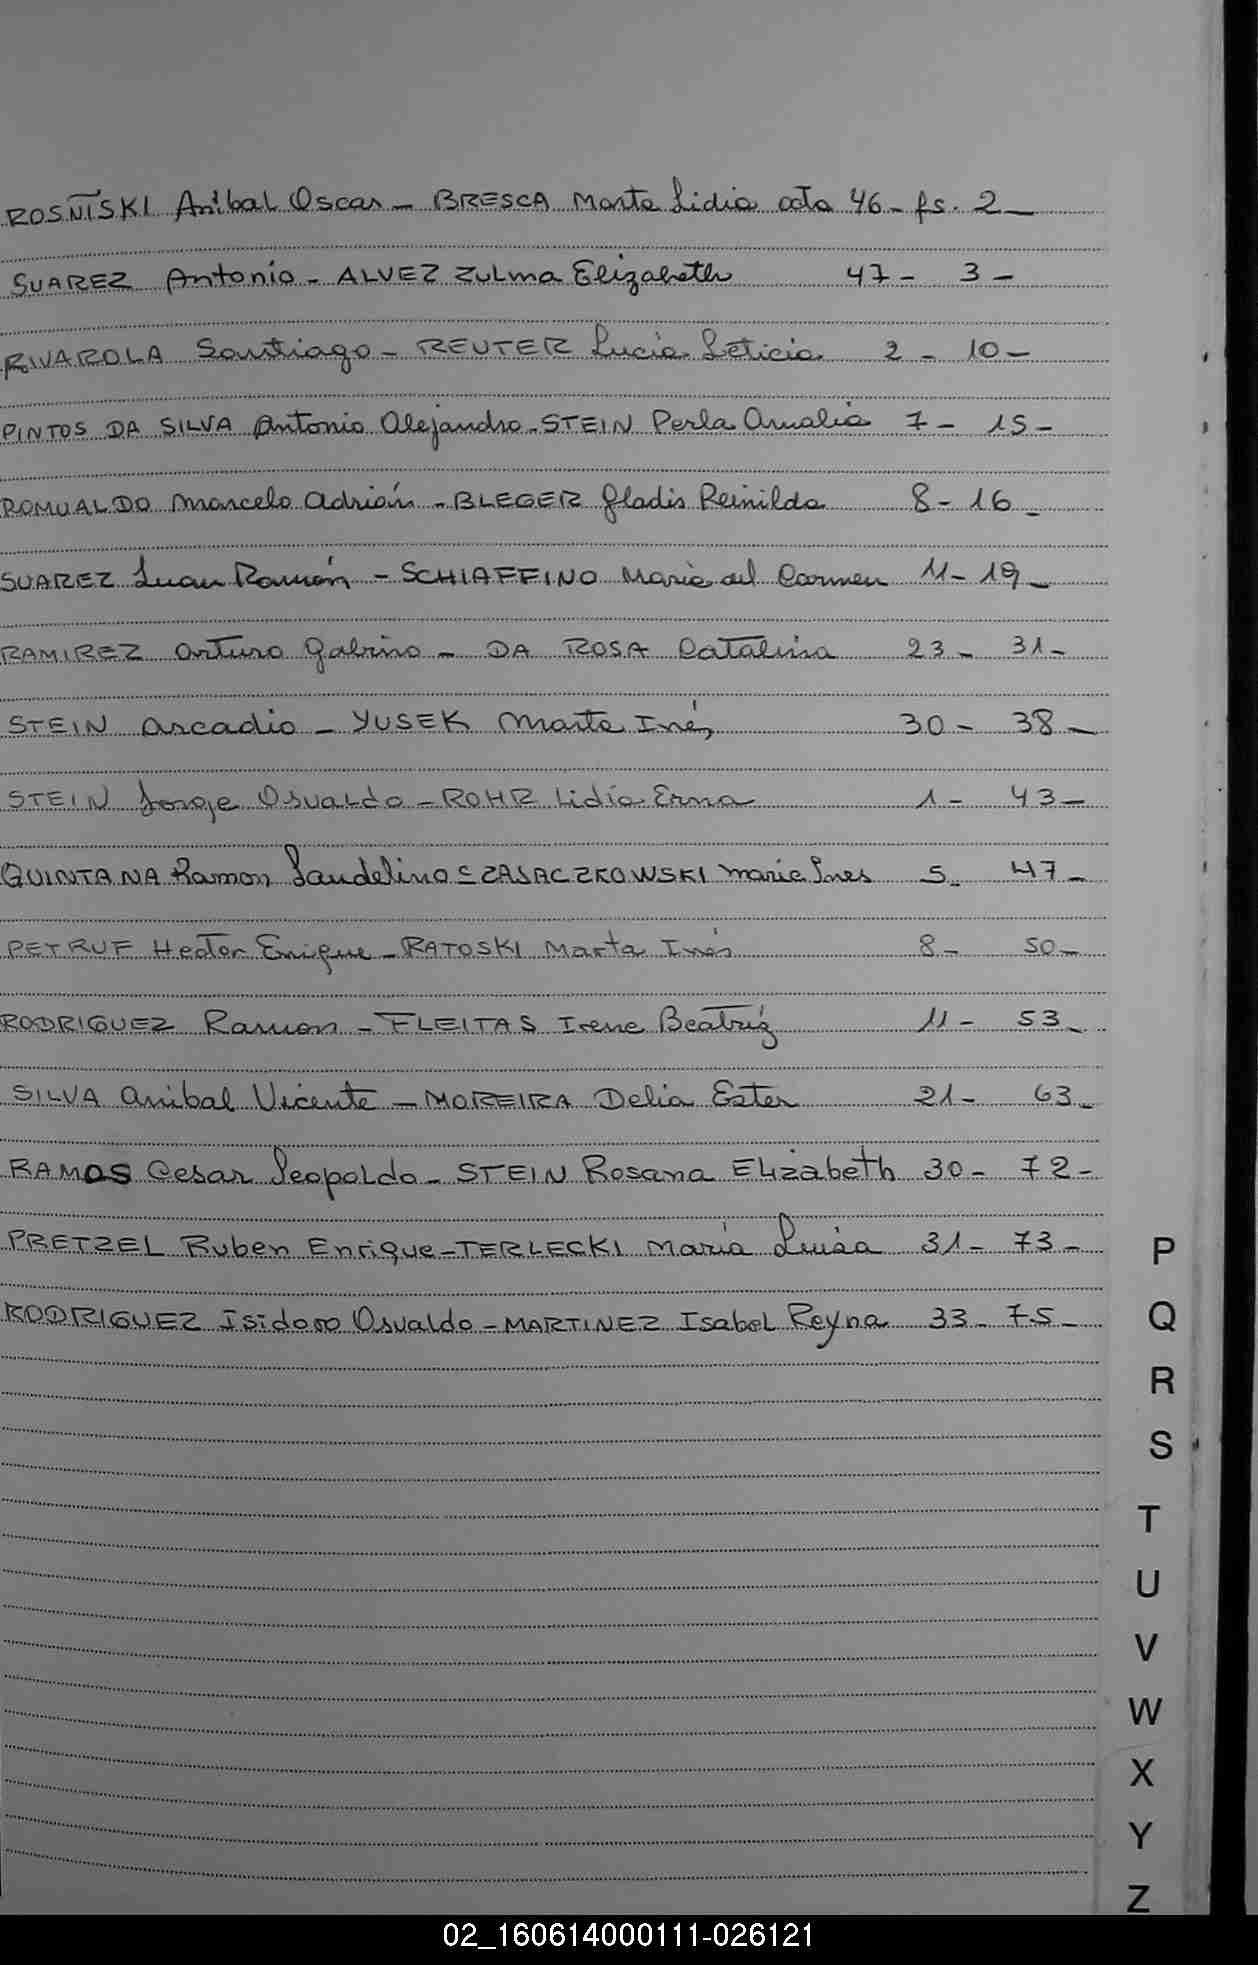 ROSÑISKI Anibal Oscar - BRESCA Marta Lidia acta 46 - fs. 2 -
SUAREZ Antonio - ALVEZ Zulma Elizabeth 47 - 3 -
RIVAROLA Santiago - REUTER Lucia Leticia 2 - 10 -
PINTOS DA SILVA Antonio Alejandro - STEIN Perla Amalia 7 - 15 -
ROMUALDO Marcelo Adrián - BLEGER Gladis Reinilda 8 - 16 -
SUAREZ Juan Ramón - SCHIAFFINO Maria del Carmen 11 - 19 -
RAMIREZ Arturo Gabino - DA ROSA Catalina 23 - 31 -
STEIN Arcadio - YUSEK Marta Inés 30 - 38 -
STEIN Jorge Osvaldo - ROHR Lidia Erna 1 - 43 -
QUINTANA Ramon Laudelino - CZASACZKOWSKI Maria Ines 5 - 47 -
PETRUF Hector Enrique - RATOSKI Marta Inés 8 - 50 -
RODRIGUEZ Ramon - FLEITAS Irene Beatríz 11 - 53 -
SILVA Anibal Vicente - MOREIRA Delia Ester 21 - 63 -
RAMOS Cesar Leopoldo - STEIN Rosana Elizabeth 30 - 72 -
PRETZEL Ruben Enrique - TERLECKI María Luisa 31 - 73 -
RODRIGUEZ Isidoro Osvaldo - MARTINEZ Isabel Reyna 33 - 75 -
P
Q
R
S
T
U
V
W
X
Y
Z
02_160614000111-026121